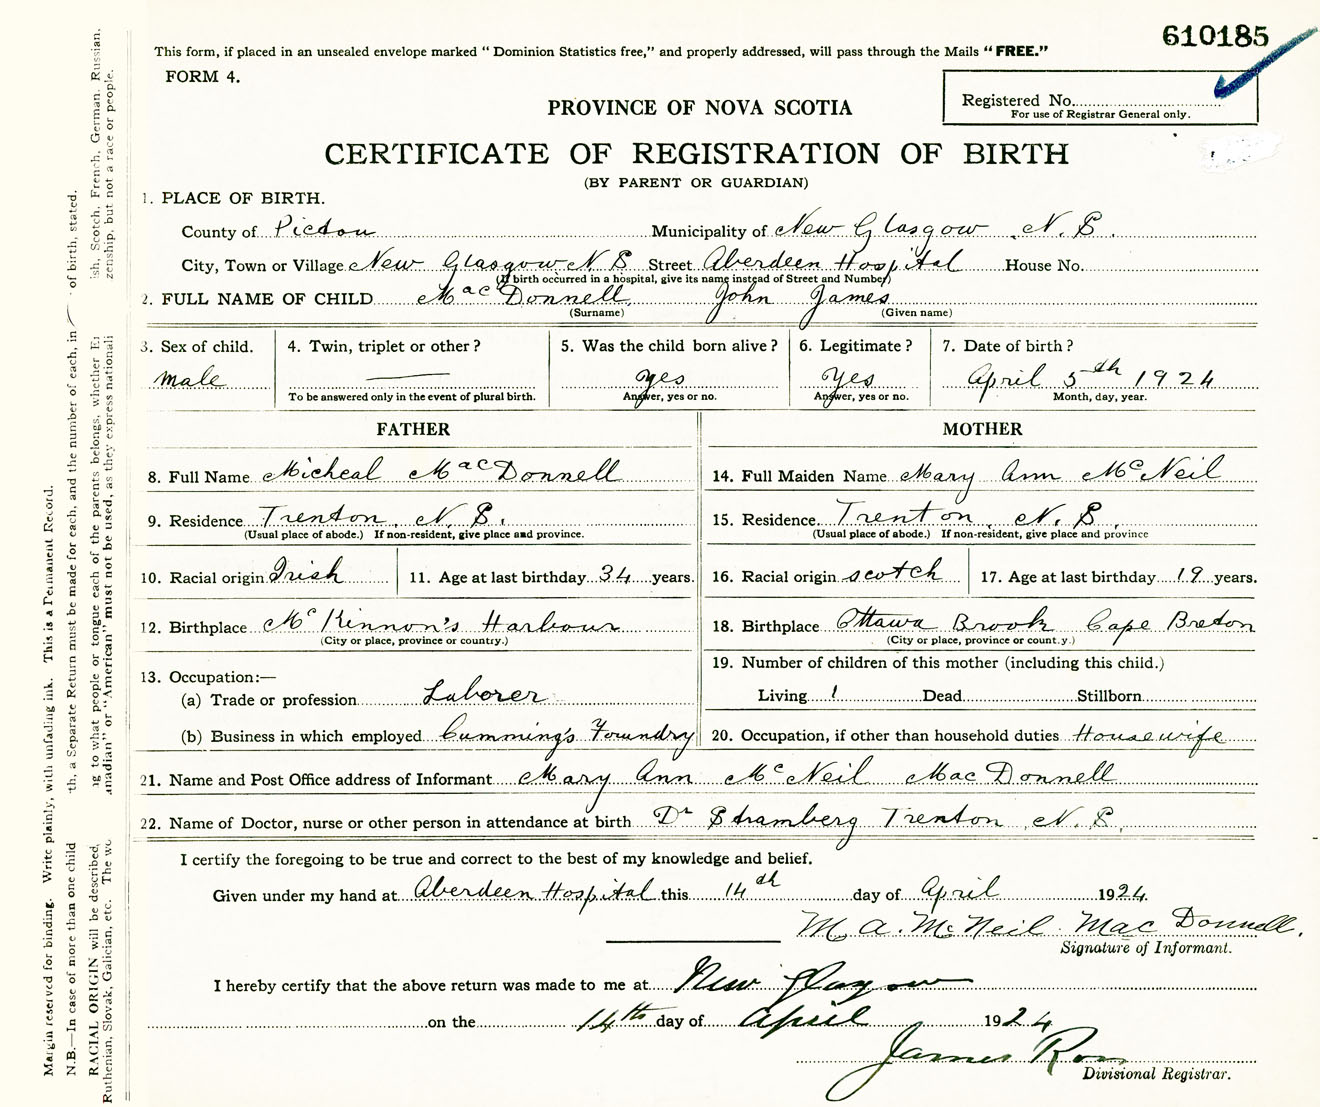 610185
This form, if placed in an unsealed envelope marked "Dominion Statistics free," and properly addressed, will pass through the Mails "FREE."
FORM 4.
Registered No.
For use of Registrar General only.
PROVINCE OF NOVA SCOTIA
CERTIFICATE OF REGISTRATION OF BIRTH
(BY PARENT OR GUARDIAN)
1. PLACE OF BIRTH.
County of Pictou Municipality of New Glasgow N. S.
City, Town or Village New Glasgow N. S Street Aberdeen Hospital House No.
(If birth occurred in a hospital, give its name instead of Street and Number)
2. FULL NAME OF CHILD MacDonnell, John James
(Surname) (Given name)
3. Sex of child. 4. Twin, triplet or other? 5. Was the child born alive? 6. Legitimate? 7. Date of birth?
male — yes Yes April 5th 1924
To be answered only in the event of plural birth. Answer, yes or no. Answer, yes or no. Month, day, year.
FATHER MOTHER
8. Full Name Micheal MacDonnell 14. Full Maiden Name Mary Ann McNeil
9. Residence Trenton, N. S. 15. Residence Trenton, N. S.
(Usual place of abode.) If non-resident, give place and province. (Usual place of abode.) If non-resident, give place and province
10. Racial origin Irish 11. Age at last birthday 34 years. 16. Racial origin scotch 17. Age at last birthday 19 years.
12. Birthplace McKinnon's Harbour 18. Birthplace Ottawa Brook Cape Breton
(City or place, province or country.) (City or place, province or country.)
13. Occupation:— 19. Number of children of this mother (including this child.)
(a) Trade or profession Laborer Living 1 Dead Stillborn
(b) Business in which employed Cumming's Foundry 20. Occupation, if other than household duties Housewife
21. Name and Post Office address of Informant Mary Ann McNeil MacDonnell
22. Name of Doctor, nurse or other person in attendance at birth Dr Stramberg Trenton, N. S.
I certify the foregoing to be true and correct to the best of my knowledge and belief.
Given under my hand at Aberdeen Hospital this 14th day of April 1924
M. A. McNeil MacDonnell.
Signature of Informant.
I hereby certify that the above return was made to me at New Glasgow
on the 14th day of April 1924
James Ross
Divisional Registrar.
Margin reserved for binding. Write plainly, with unfading ink. This is a Permanent Record.
N.B.—In case of more than one child th, a Separate Return must be made for each, and the number of each, in of birth, stated.
RACIAL ORIGIN will be described, ng to what people or tongue each of the parents belongs, whether ish, Scotch, French, German, Russian,
Ruthenian, Slovak, Galician, etc. The anadian" or "American" must not be used, as they express nationali zenship, but not a race or people.